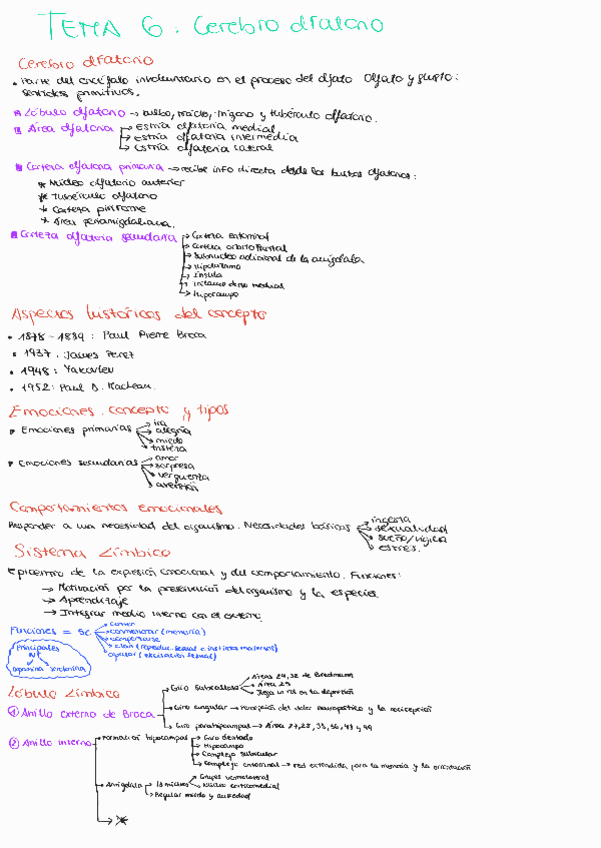 TEMA 6. Cerebro olfatorio
Cerebro olfatorio
• Parte del encéfalo involuntario en el proceso del olfato Olfato y gusto:
sentidos primitivos.
Lóbulo olfatorio → bulbo, tracto, trígono y tubérculo olfatorio.
Área olfatoria → estria olfatoria medial
→ estria olfatoria intermedia
→ estria olfatoria lateral
Corteza olfatoria primaria → recibe info directa desde los bulbos olfatorios:
* Núcleo olfatorio anterior
* Tubérculo olfatorio
* Corteza piriforme
* Área periamigdaliana.
Corteza olfatoria secundaria → Corteza entorrinal
→ Corteza orbitofrontal
→ Subnucleo adicional de la amígdala
→ Hipotálamo
→ Insula
→ Tálamo dorso medial
→ Hipocampo
Aspectos históricos del concepto
• 1878-1889: Paul Pierre Broca
• 1937. James Perez
• 1948: Yakovlev
• 1952: Paul D. Maclean.
Emociones. concepto y tipos
Emociones primarias → ira
→ alegria
→ miedo
→ tristeza
Emociones secundarias → amor
→ sorpresa
→ verguenza
→ aversión
Comportamientos emocionales
Responder a una necesidad del organismo. Necesidades básicas → ingesta
→ sexualidad
→ sueño/vigilia
→ estrés.
Sistema Límbico
Epicentro de la expresión emocional y del comportamiento. Funciones:
→ Motivación por la preservación del organismo y la especie.
→ Aprendizaje
→ Integrar medio interno con el externo.
Funciones = 5C → comer
→ conmemorar (memoria)
→ comportarse
→ clan (reproduc. sexual e instintos maternos)
→ copular (excitación sexual)
Principales
NT
dopamina serotonina
Lóbulo Límbico
① Anillo externo de Broca → Giro subcalloso → Áreas 24, 32 de Brodmann
→ Área 25
→ Juega un rol en la depresión
→ Giro cingular → Percepción del dolor neuropático y la nocicepción
→ Giro parahipocampal → Área 27, 28, 35, 36, 48 y 49
② Anillo interno → Formación hipocampal → Giro dentado
→ Hipocampo
→ Complejo subicular
→ Complejo entorrinal → red extendida para la memoria y la orientación
→ Amígdala → 13 núcleos → Grupo
→ Núcleo corticomedial
→ Regular miedo y ansiedad